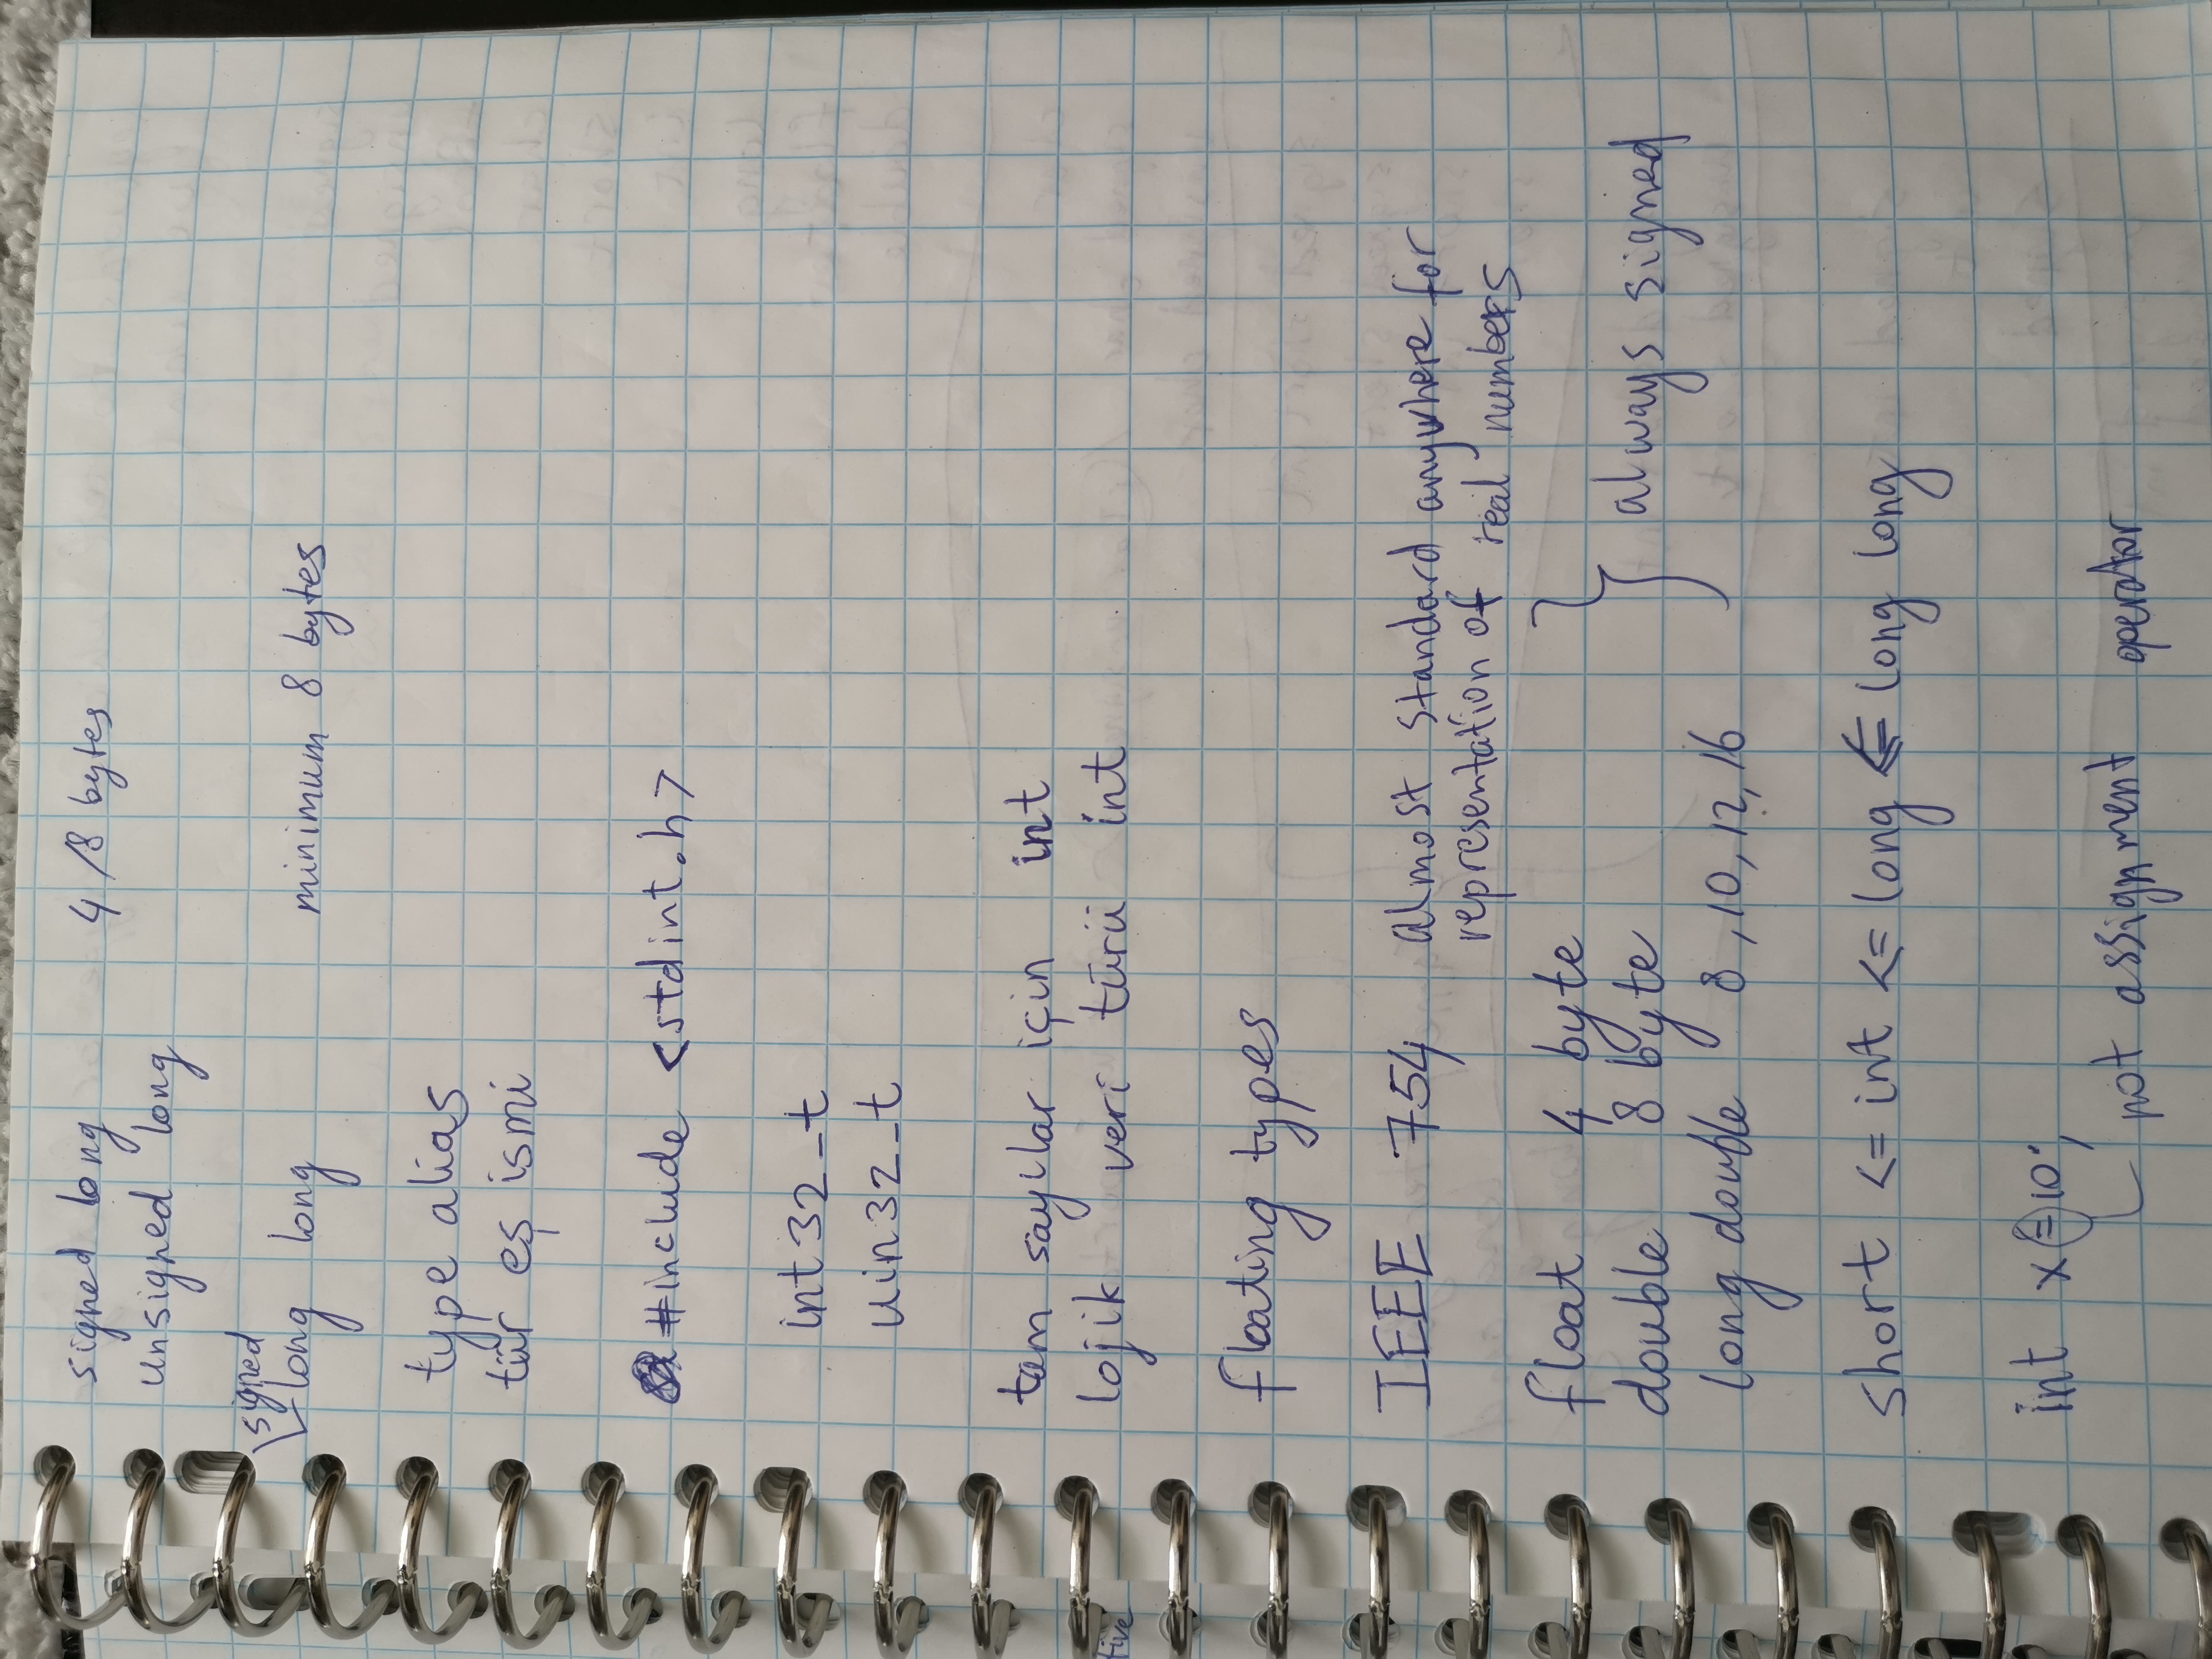 signed long 4/8 bytes
unsigned long
signed
long long minimum 8 bytes
type alias
tür eş ismi
#include <stdint.h>
int32_t
uin32_t
tam sayılar için int
lojik veri türü int
tive
floating types
IEEE 754 almost standard anywhere for
representation of real numbers
float 4 byte
double 8 byte
always signed
long double 8, 10, 12, 16
short <= int <= long <= long long
int x = 10;
not assignment operator